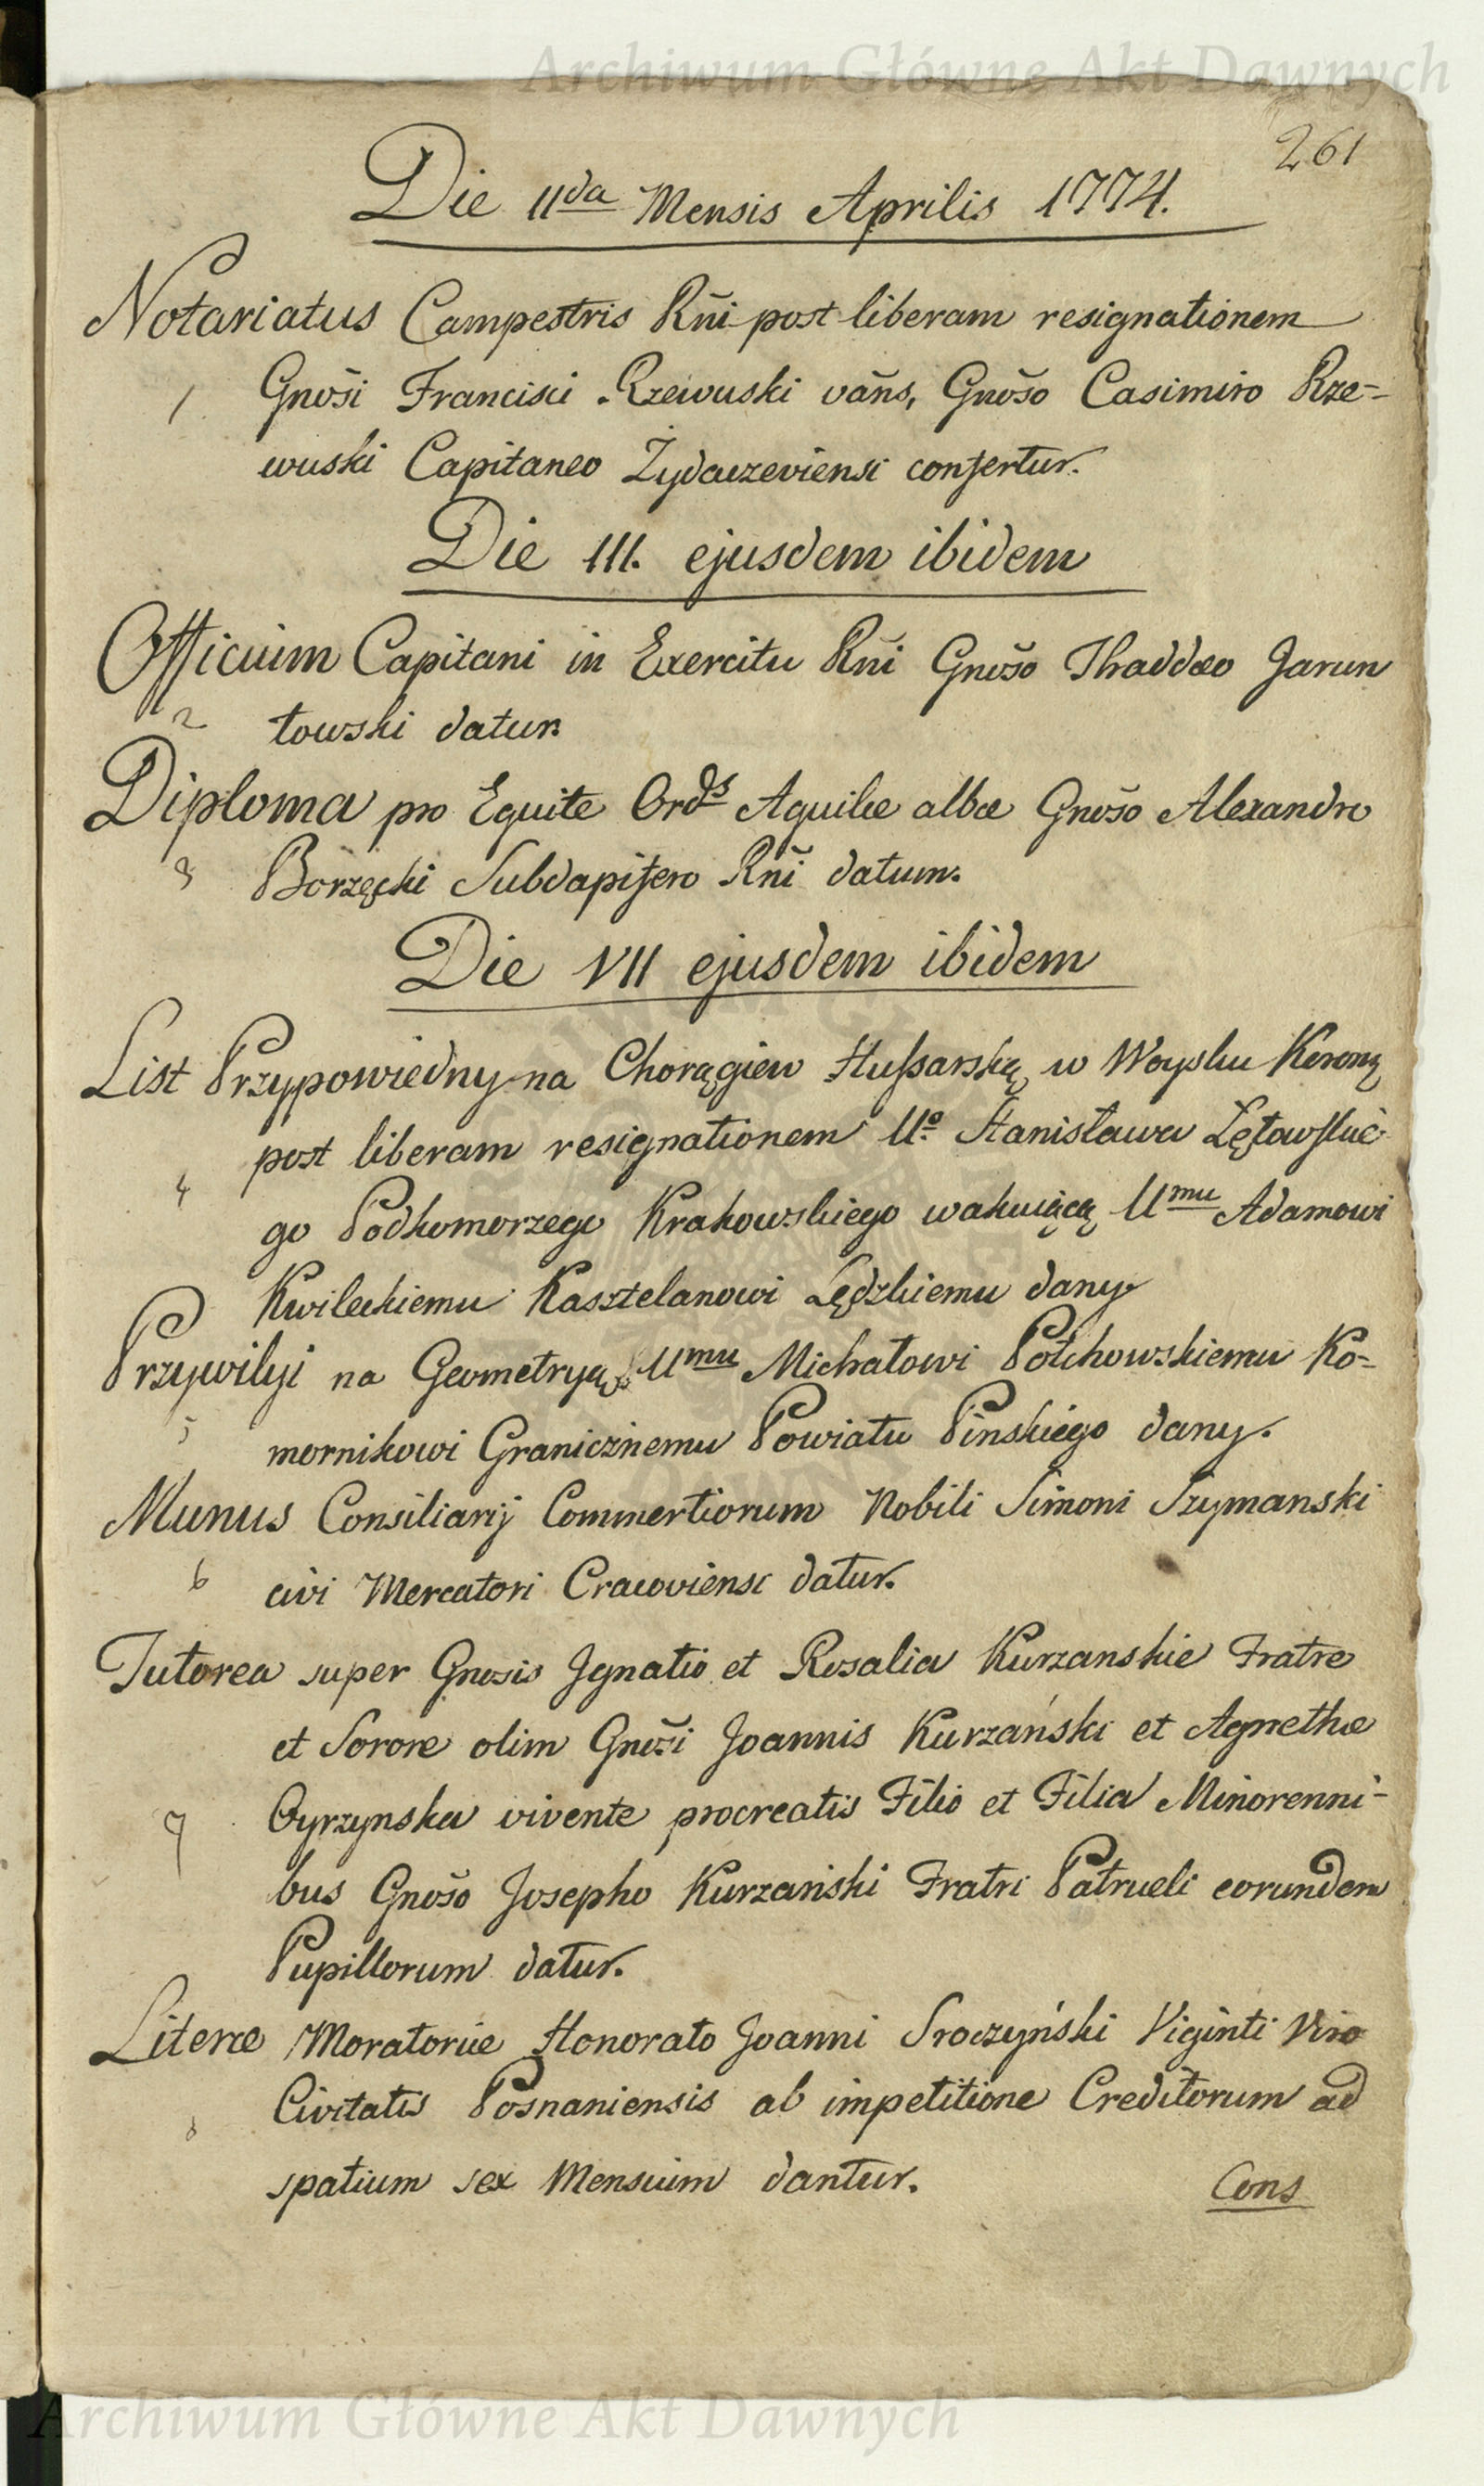 Archiwum Główne Akt Dawnych
261
Die IIda Mensis Aprilis 1774.
Notariatus Campestris Rñi post liberam resignationem
1 Gnõsi Francisci Rzewuski vãns, Gnõso Casimiro Rze=
wuski Capitaneo Żydaczeviensi confertur.
Die III. ejusdem ibidem
Officium Capitani in Exercitu Rñi Gnõso Thaddæo Jarun
2 towski datur.
Diploma pro Equite Ords Aquilæ albæ Gnõso Alexandro
3 Borzęcki Subdapifero Rñi datum.
Die VII ejusdem ibidem
List Przypowiedny na Chorągiew Hussarską w Woysku Koronų
post liberam resignationem Uo Stanisława Łętowskie
4 go Podkomorzego Krakowskiego wakuiącą Umu Adamowi
Kwileckiemu Kasztelanowi Lędzkiemu dany
Przywilyi na Geometryą Umu Michałowi Połchowskiemu Ko=
5 mornikowi Granicznemu Powiatu Pinskiego dany.
Munus Consiliarij Commertiorum Nobili Simoni Szymanski
6 civi Mercatori Cracoviensi datur.
Tutorea super Gnosis Ignatio et Rosalia Kurzanskie Fratre
et Sorore olim Gnõsi Joannis Kurzański et Agnethæ
7 Oyrzynska vivente procreatis Filio et Filia Minorenni-
bus Gnõso Josepho Kurzański Fratri Patrueli eorundem
Pupillorum datur.
Literæ Moratoriæ Honorato Joanni Sroczyński Viginti Viro
8 Civitatis Posnaniensis ab impetitione Creditorum ad
spatium sex Mensium dantur.
Cons
Archiwum Główne Akt Dawnych